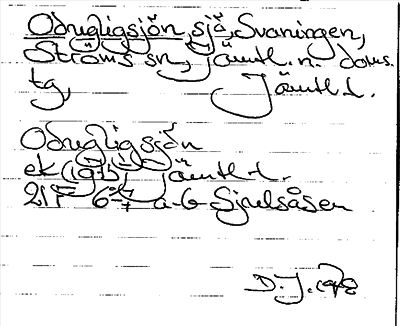 Odugligsjön, sjö, Svaningen,
Ströms sn, Jämtl. n. doms.
tg, Jämtl. l.
Odugligsjön
ek (1973) Jämtl. l.
21F 6-7 a-b Sjoulsåsen
D. J. 1978